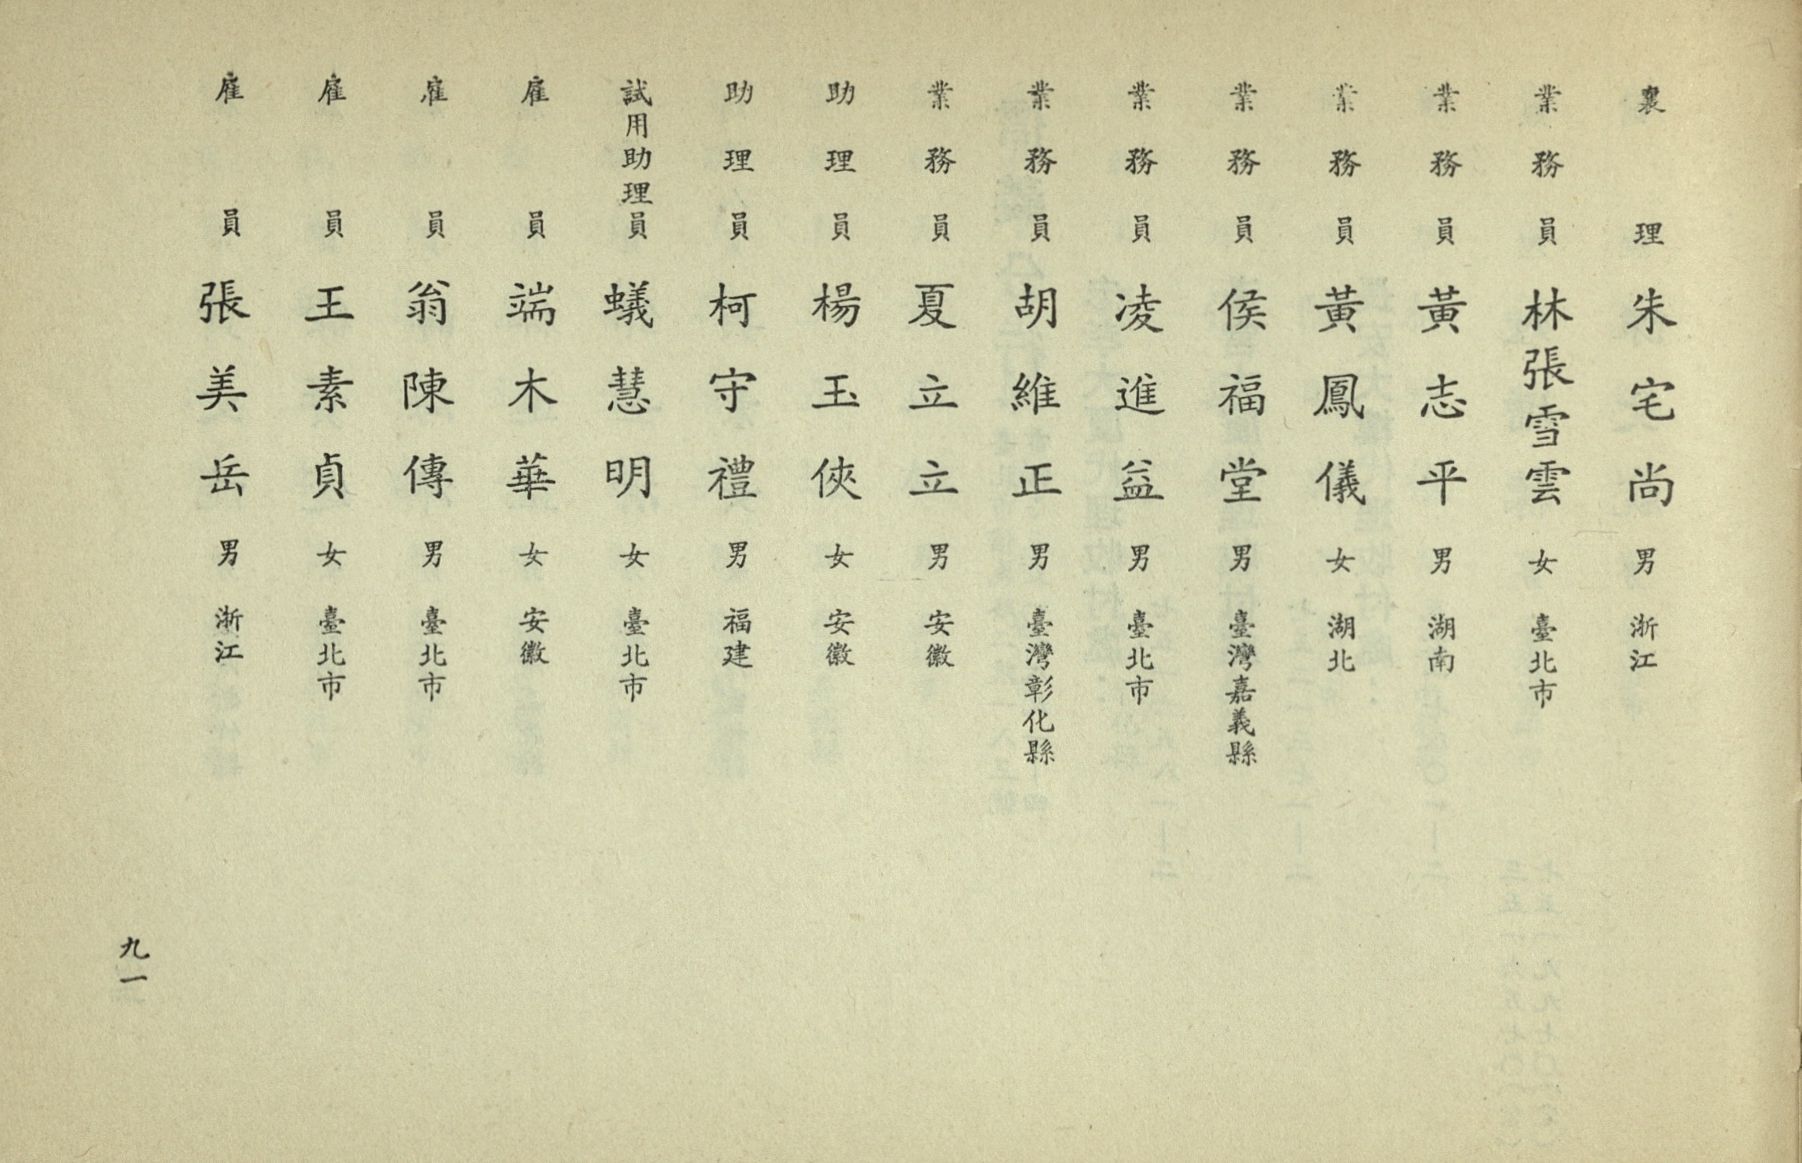 襄理 朱宅尚 男 浙江
業務員 林張雪雲 女 臺北市
業務員 黃志平 男 湖南
業務員 黃鳳儀 女 湖北
業務員 侯福堂 男 臺灣嘉義縣
業務員 凌進益 男 臺北市
業務員 胡維正 男 臺灣彰化縣
業務員 夏立立 男 安徽
助理員 楊玉俠 女 安徽
助理員 柯守禮 男 福建
試用助理員 蟻慧明 女 臺北市
雇員 端木華 女 安徽
雇員 翁陳傳 男 臺北市
雇員 王素貞 女 臺北市
雇員 張美岳 男 浙江
九一